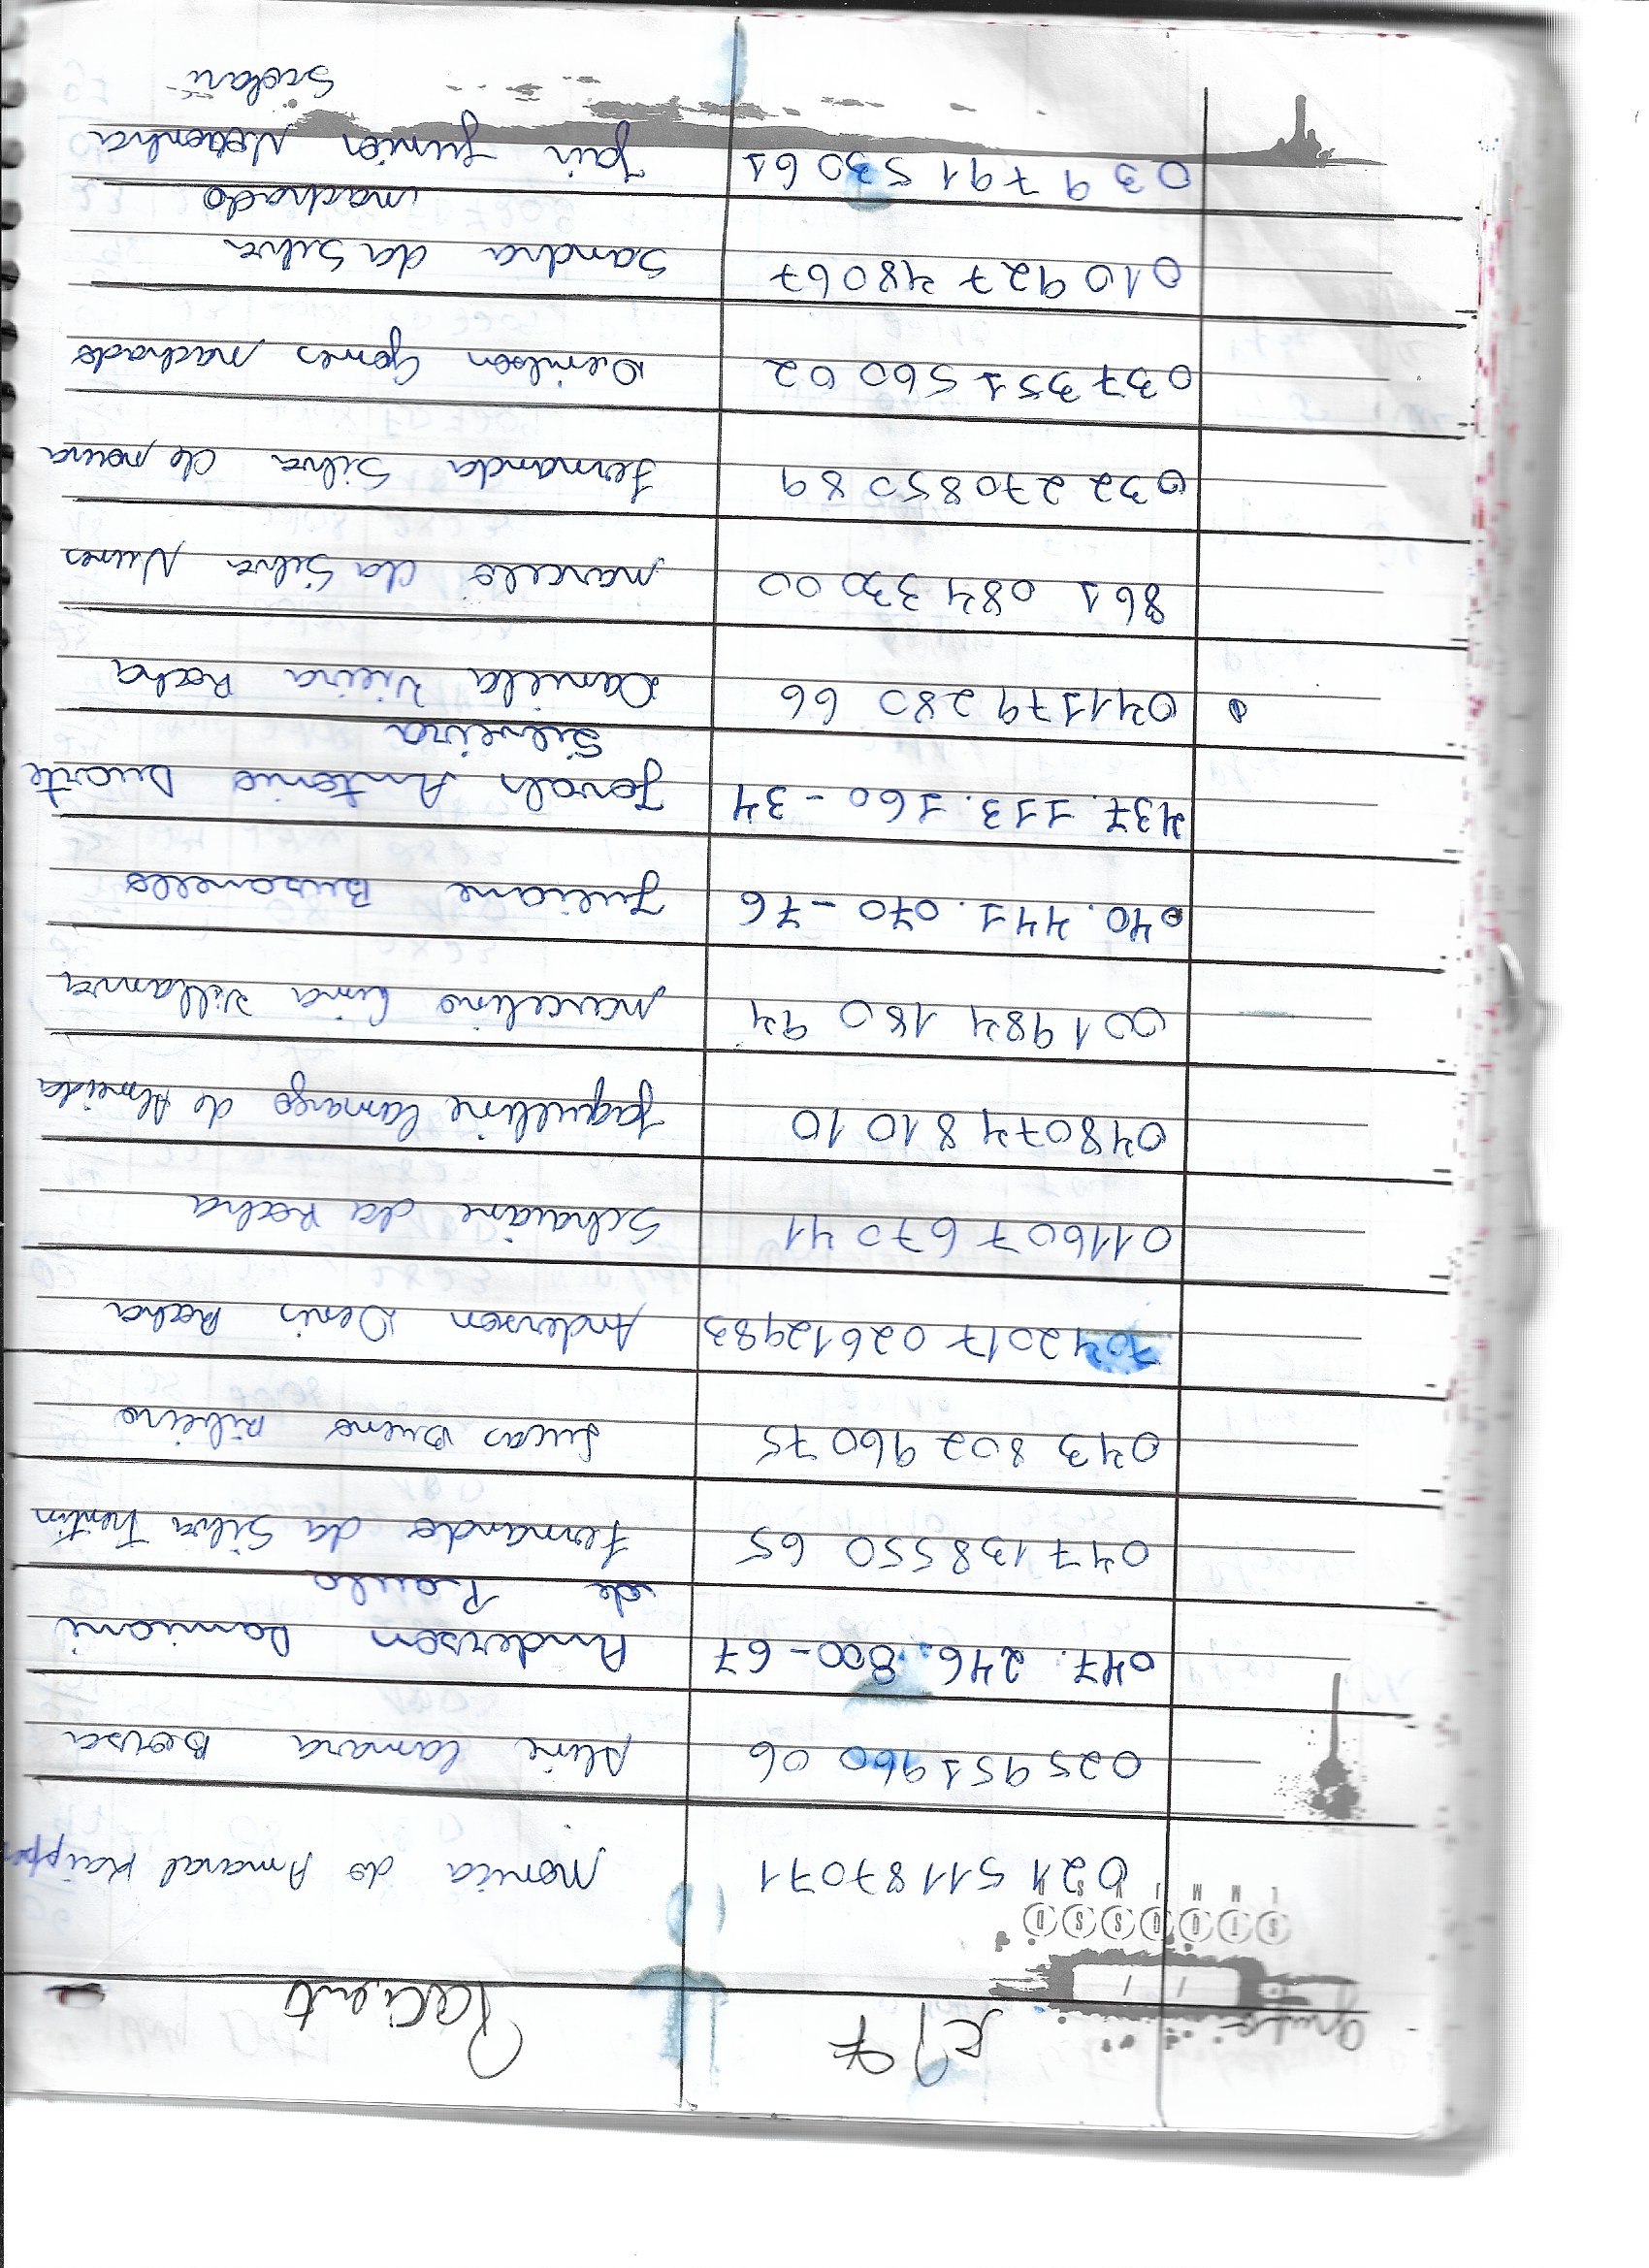 Grupo CPF Paciente
S T Q Q S S D
L M M J V S D
021 511 87071 Monica do Amaral Kaipper
025951960 06 Aline Camara Bersa
047.246.800-67 Anderson Damiani
de Paula
047138550 65 Fernando da Silva Trentin
043 802 96075 Lucas Bueno Ribeiro
7042017 02612983 Anderson Denis Rocha
011607 670 41 Schaiane da Rocha
048074 810 10 Jaqueline Camargo de Almeida
001 984 180 94 Marcelino Lima Villanva
040.441.070-76 Juliane Busanello
437.113.160-34 Jovals Antonio Duarte
Silveira
041179280 66 Daniela Vieira Rocha
861 084 330 00 Marcelo da Silva Nunes
032 270850 89 Fernanda Silva de moura
037 351 560 02 Denilson Gomes machado
010 927 480 67 Sandra da Silva
machado
039 791 530 61 Jair Junior Noronha